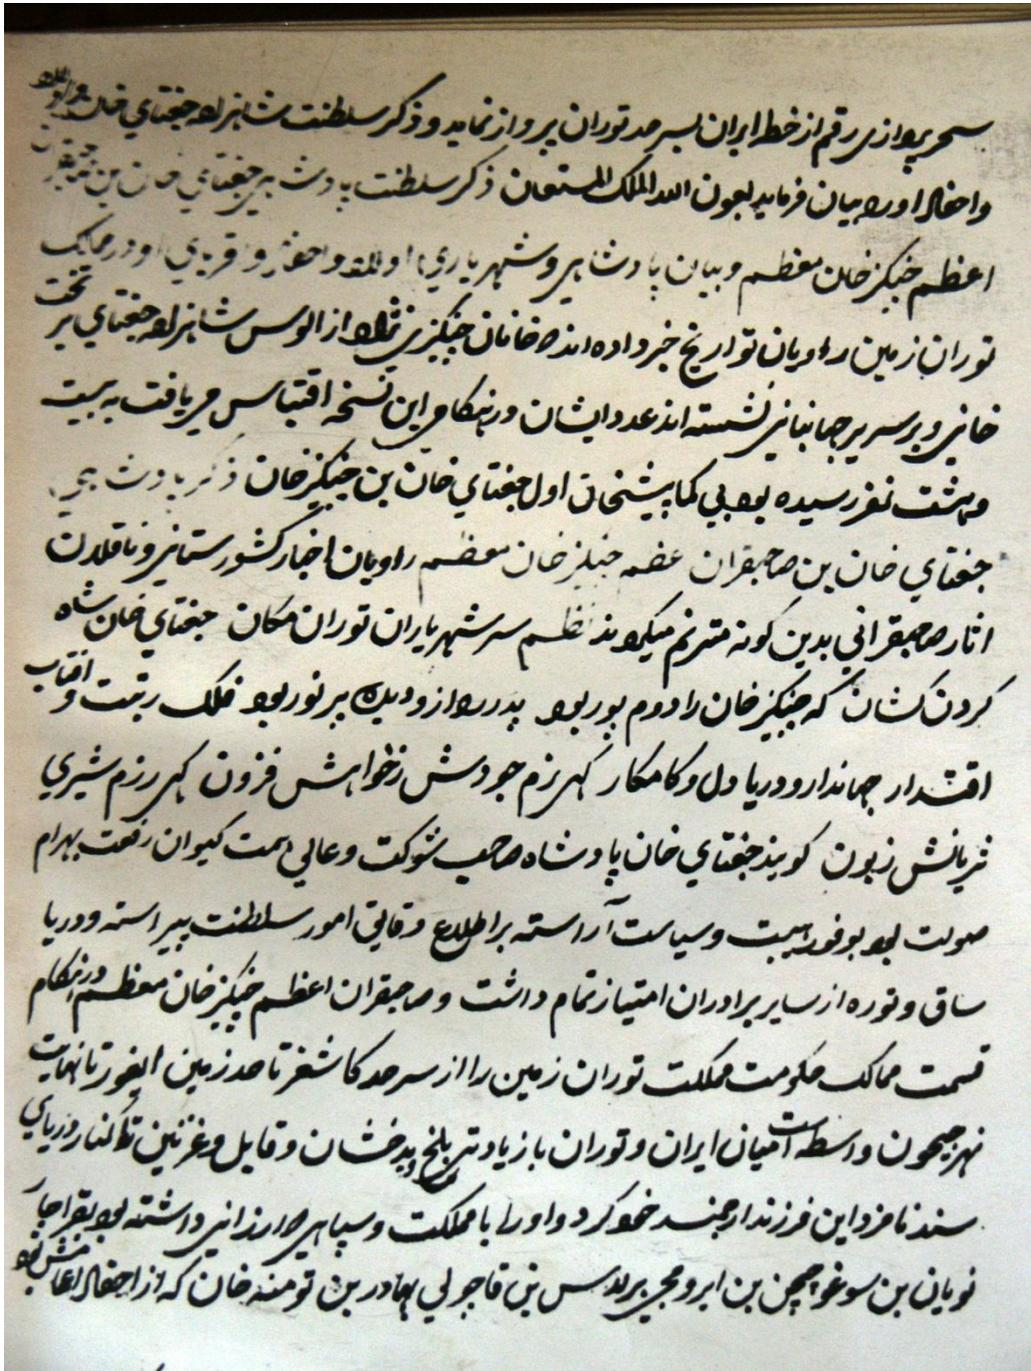 سحر پردازی رقم از خطه ایران بسرحد توران پرواز نماید و ذکر سلطنت شاهزاده جغتای خان و اولاد
و احفاد او را بیان فرماید بعون الله الملک المستعان ذکر سلطنت پادشاهی جغتای خان بن
اعظم چنگیز خان معظم و بیان پادشاهی و شهریاری اولاد و احفاد و اقربای او در ممالک
توران زمین راویان تواریخ خبر داده اند که خانان چنگیزی نژاد از الوس شاهزاده جغتای بر تخت
خانی و بر سریر جهانبانی نشسته اند عدد ایشان در هنکامی این نسخه اقتباس می یافت به بیست
و هشت نفر رسیده بود بی کما بیش خان اول جغتای خان بن چنگیز خان ذکر پادشاهی
جغتای خان بن صاحبقران عضمه چنگیز خان معظم راویان اخبار کشورستانی و ناقلان
اثار صاحبقرانی بدین کونه مترنم میکردند نظم سر شهریاران توران مکان جغتای خان شاه
کردن کشان که چنگیز خان را دوم پور بود پدر را ازو دیده پر نور بود فلک رتبت و افتاب
اقتدار جهاندار و دریا دل و کامکار کهی بزم جودش زخواهش فزون کهی رزم شیری
ثریانش زبون کویند جغتای خان پادشاه صاحب شوکت و عالی همت کیوان رفعت بهرام
صولت بود بوفور هیبت و سیاست آراسته بر اطلاع دقایق امور سلطنت پیراسته و در یا
ساق و توره از سایر برادران امتیاز تمام داشت و صاحبقران اعظم چنگیز خان معظم در هنکام
قسمت ممالک حکومت مملکت توران زمین را از سرحد کاشغر تا حد زمین ایغور تا نهایت
نهر جیحون واسطه است میان ایران و توران باز یادتی بلخ و بدخشان و قابل و غزنین تا کنار دریای
سند نامزد این فرزند ارجمند خود کرد و او را با مملکت و سپاهی ارزانی داشته بود بقراجار
نویان بن سوغو جیچن بن ایرومجی برلاس بن قاجولی بهادر بن تومنه خان که از احفاد